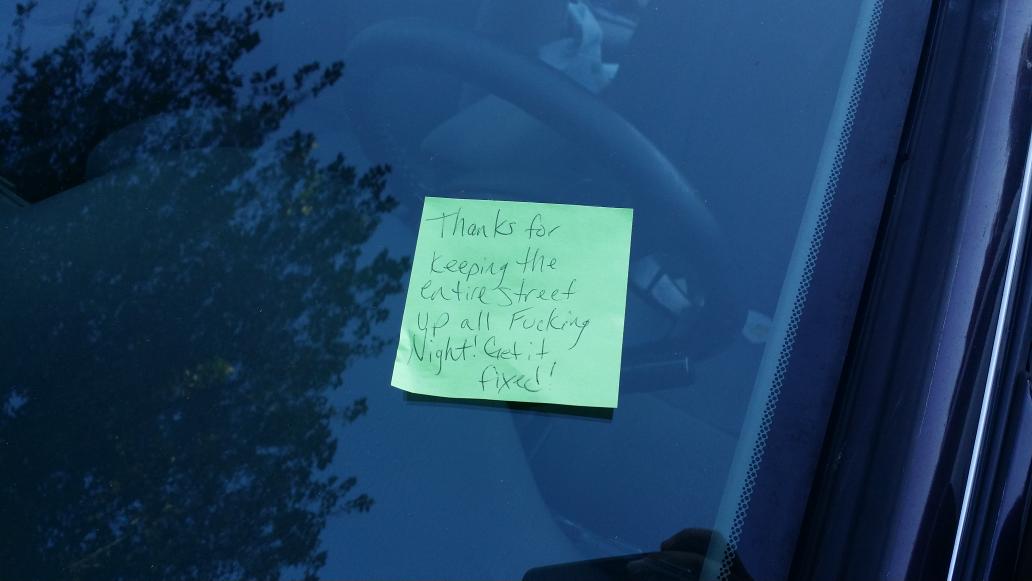 Thanks for
keeping the
entire street
up all Fucking
Night! Get it
fixed!